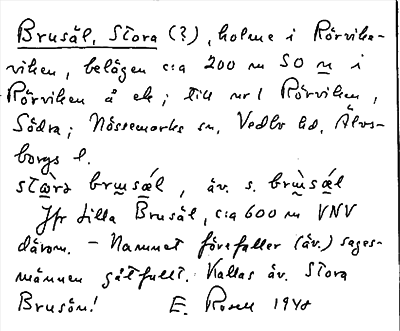 Brusäl, Stora (?), holme i Rörvika-
viken, belägen c:a 200 m SO m i
Rörviken å ek; till nr 1 Rörviken,
Södra; Nössemarks sn, Vedbo hd, Älvs-
borgs l.
stɷ̀ra brusǽl, äv. s. brùsǽl
Jfr Lilla Brusäl, c:a 600 m VNV
därom. – Namnet förefaller (äv.) sages-
männen gåtfullt. Kallas äv. Stora
Brusön! E. Rosell 1940